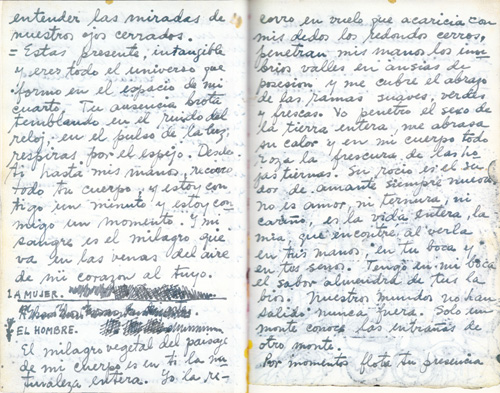 entender las miradas de
nuestros ojos cerrados.
= Estas presente, intangible
y eres todo el universo que
formo en el espacio de mi
cuarto. Tu ausencia brota
temblando en el ruido del
reloj, en el pulso de la luz,
respiras por el espejo. Desde
ti hasta mis manos, recorro
todo tu cuerpo, y estoy con
tigo un minuto y estoy con
migo un momento. Y mi
sangre es el milagro que
va en las venas del aire
de mi corazon al tuyo.
LA MUJER.
EL HOMBRE.
El milagro vegetal del paisaje
de mi cuerpo es en ti la na
turaleza entera. Yo la re-
corro en vuelo que acaricia con
mis dedos los redondos cerros,
penetran mis manos los um
brios valles en ansias de
posesion y me cubre el abrazo
de las ramas suaves, verdes
y frescas. Yo penetro el sexo de
la tierra entera, me abrasa
su calor y en mi cuerpo todo
roza la frescura de las ho
jas tiernas. Su rocio es el su
dor de amante siempre nuevo.
no es amor, ni ternura, ni
cariño, es la vida entera, la
mia, que encontré al verla
en tus manos, en tu boca y
en tus senos. Tengo en mi boca
el sabor almendra de tus la
bios. Nuestros mundos no han
salido nunca fuera. Solo un
monte conoce las entrañas de
otro monte.
Por momentos flota tu presencia